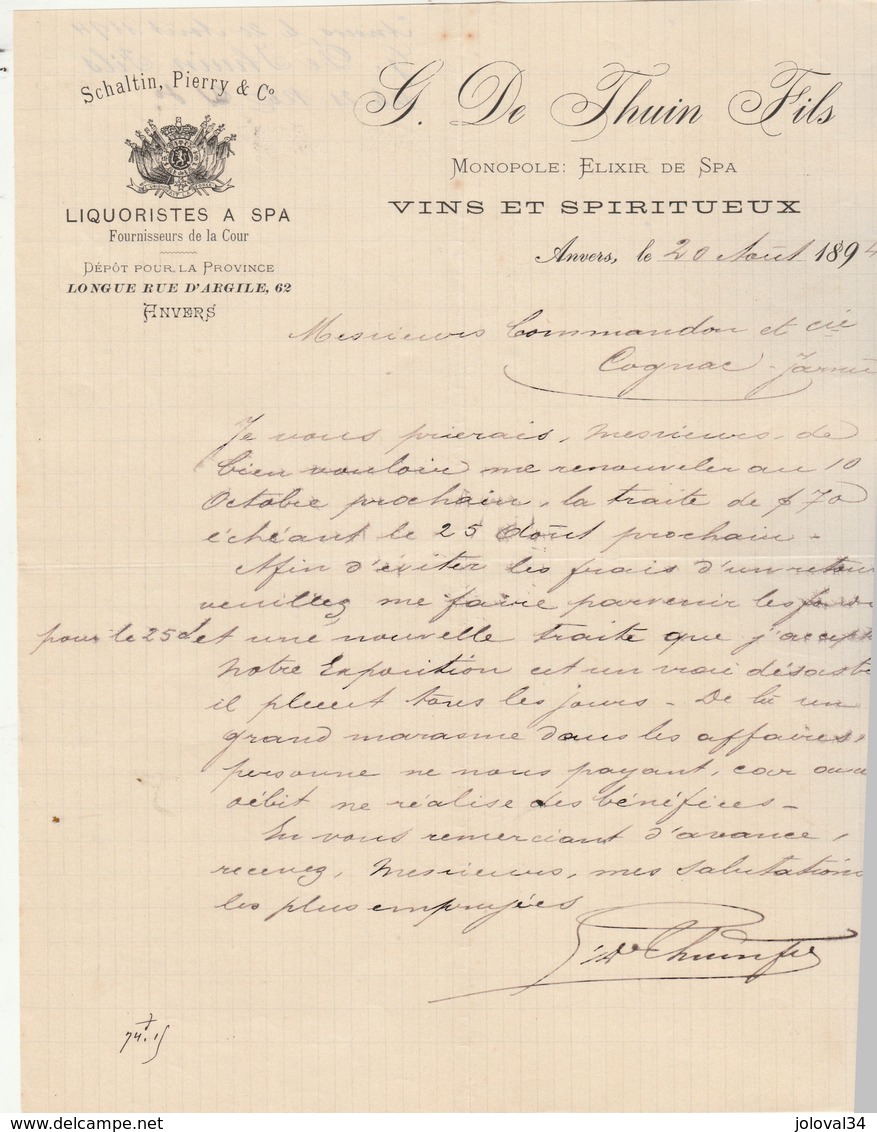 Schaltin, Pierry & Co
LIQUORISTES A SPA
Fournisseurs de la Cour
DÉPÔT POUR LA PROVINCE
LONGUE RUE D'ARGILE, 62
ANVERS
G. De Thuin Fils
MONOPOLE: ELIXIR DE SPA
VINS ET SPIRITUEUX
Anvers, le 20 Août 1894
Messieurs Commandon et cie
Cognac - Jarnac
Je vous prierais, Messieurs, de
bien vouloir me renouveler au 10
Octobre prochain, la traite de
échéant le 25 août prochain -
Afin d'éviter les frais d'un retour
veuillez me faire parvenir les fonds
pour le 25 et et une nouvelle traite que j'accepte
Notre Exposition est un vrai désastre
il pleut tous les jours - De là un
grand marasme dans les affaires,
personne ne nous payant, car aucun
débit ne réalise des bénéfices -
En vous remerciant d'avance,
recevez, Messieurs, mes salutations
les plus empressées
G. De Thuin fils
74.15
www.delcampe.net
joloval34